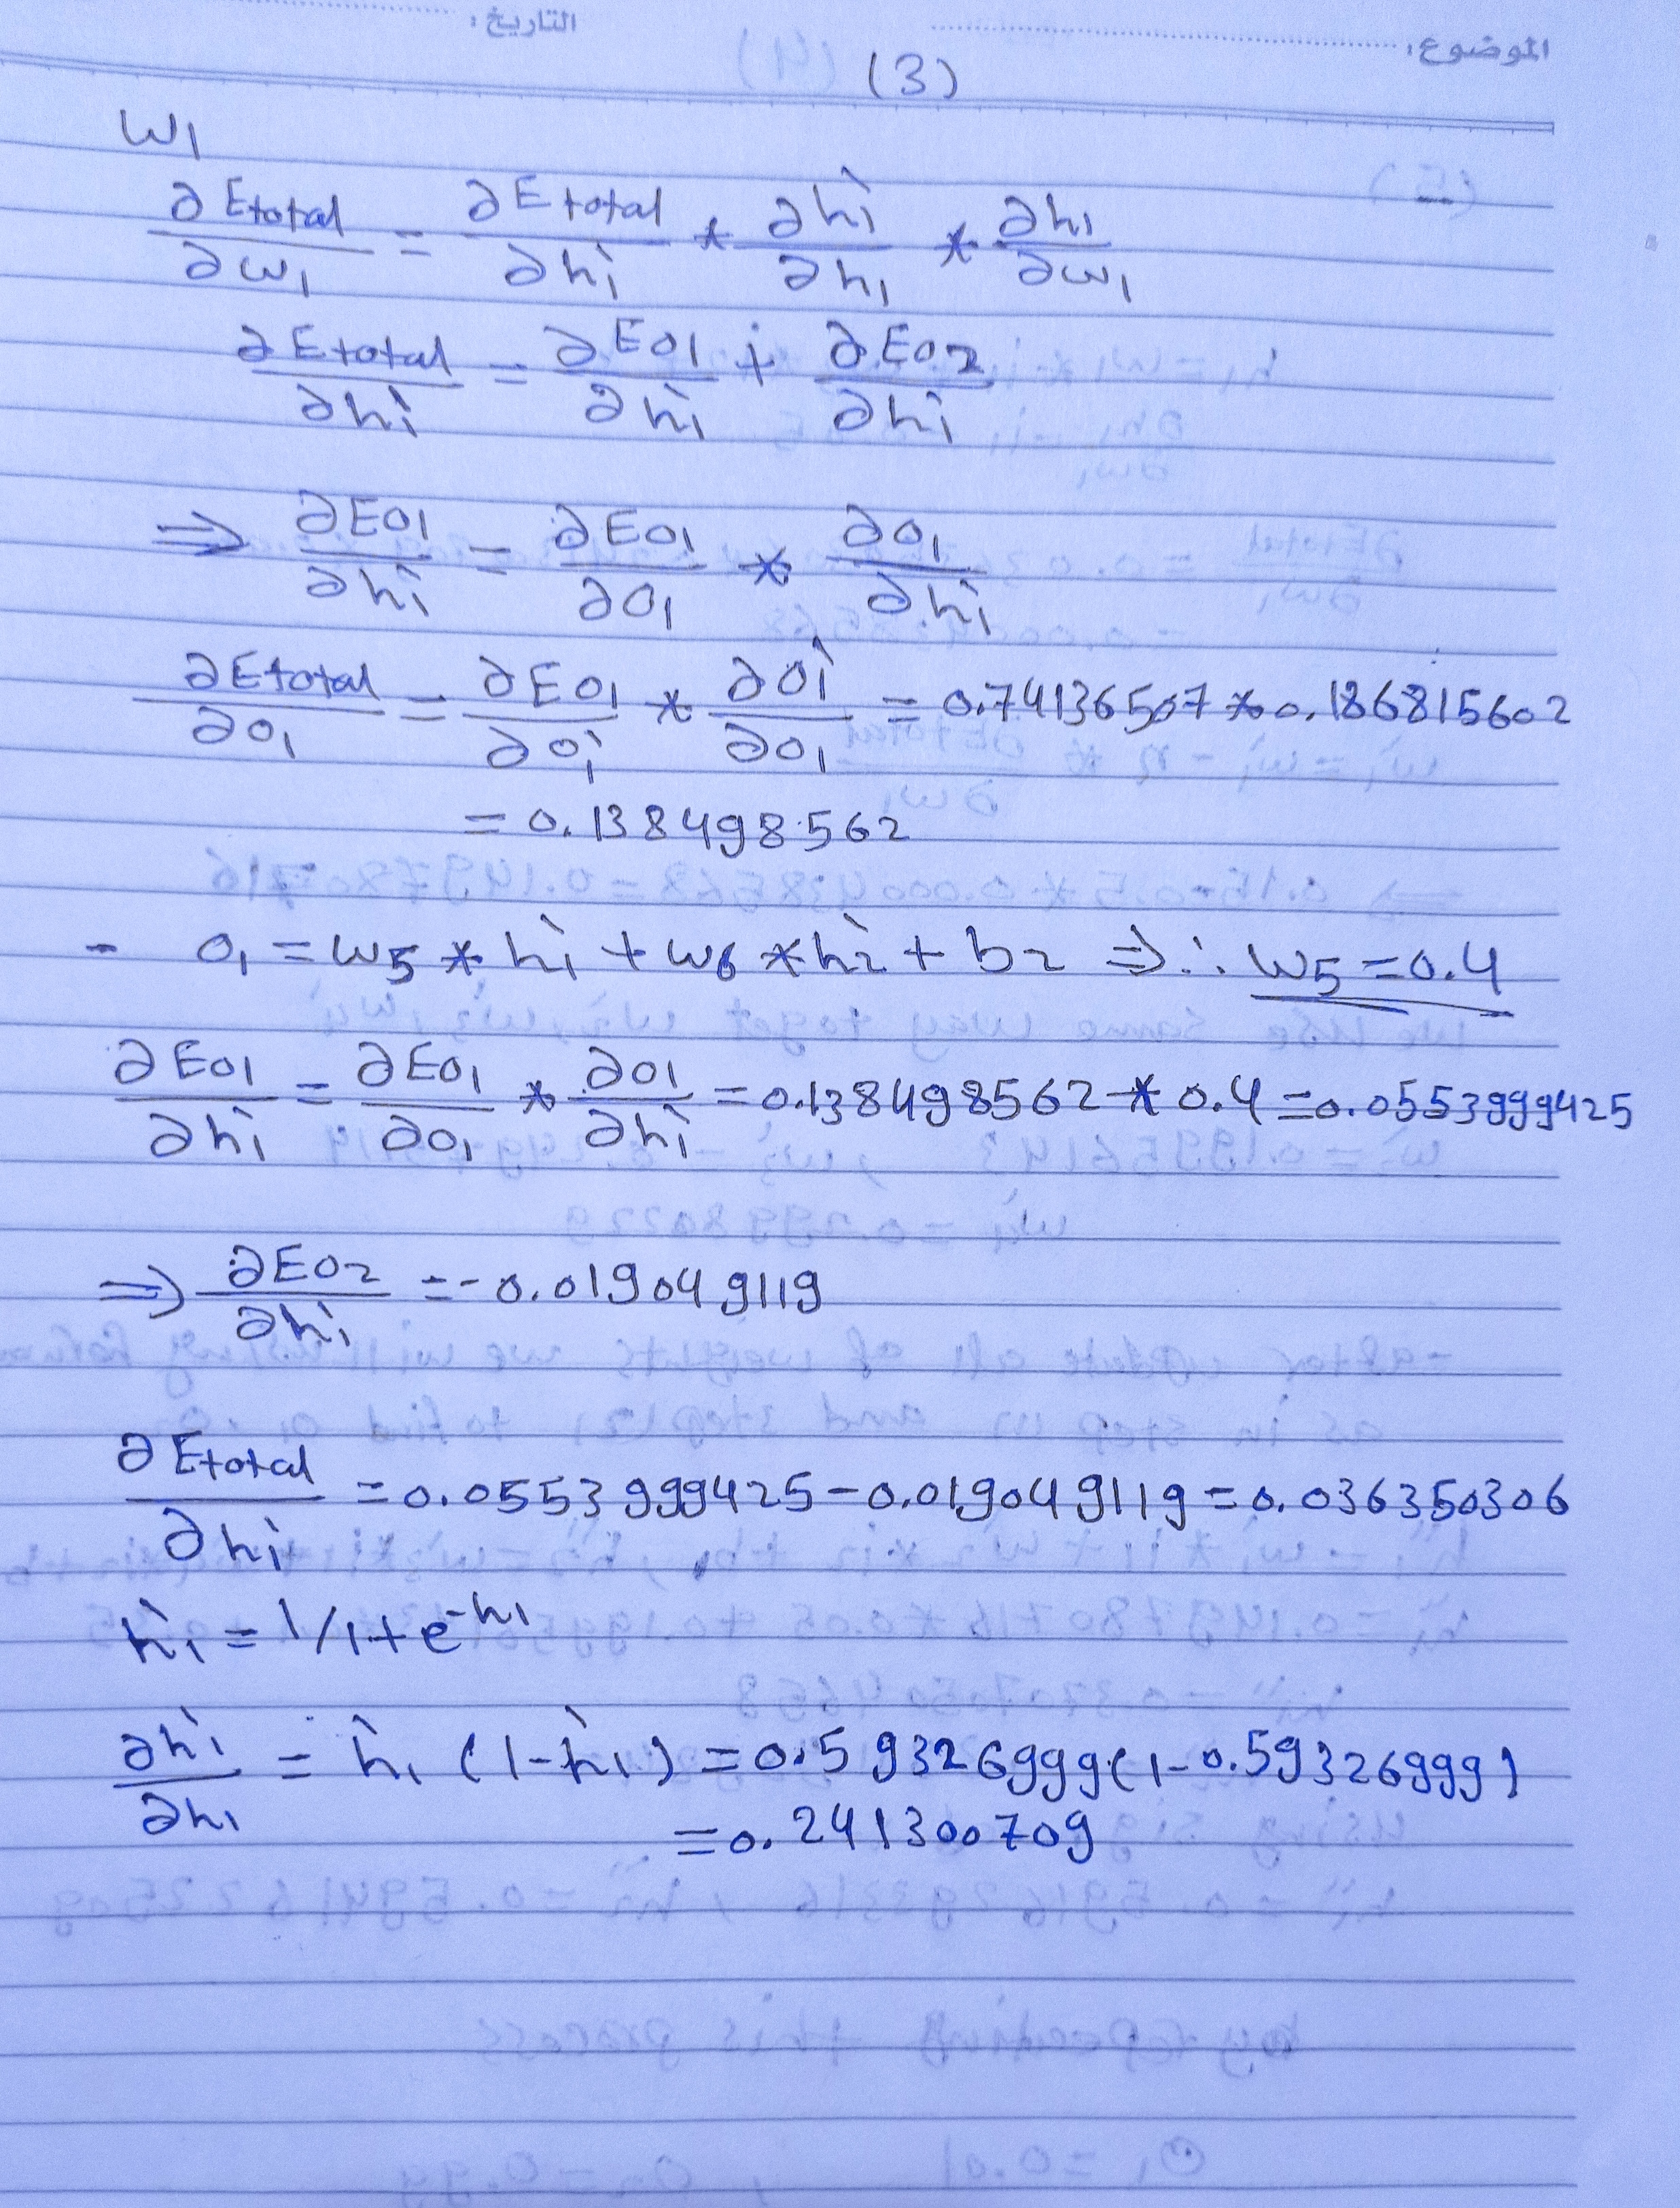 التاريخ:
الموضوع:
(3)
w1
∂Etotal/∂w1 = ∂Etotal/∂h̀1 * ∂h̀1/∂h1 * ∂h1/∂w1
∂Etotal/∂h̀1 = ∂E01/∂h̀1 + ∂E02/∂h̀1
⇒ ∂E01/∂h̀1 = ∂E01/∂01 * ∂01/∂h̀1
∂Etotal/∂01 = ∂E01/∂0̀1 * ∂0̀1/∂01 = 0.74136507 * 0.186815602
= 0.138498562
- 01 = w5 * h̀1 + w6 * h̀2 + b2 ⇒ ∴ w5 = 0.4
∂E01/∂h̀1 = ∂E01/∂01 * ∂01/∂h̀1 = 0.138498562 * 0.4 = 0.0553999425
⇒ ∂E02/∂h̀1 = -0.019049119
∂Etotal/∂h̀1 = 0.0553999425 - 0.019049119 = 0.036350306
h̀1 = 1/1+e^-h1
∂h̀1/∂h1 = h̀1 (1-h̀1) = 0.59326999(1-0.59326999)
= 0.241300709